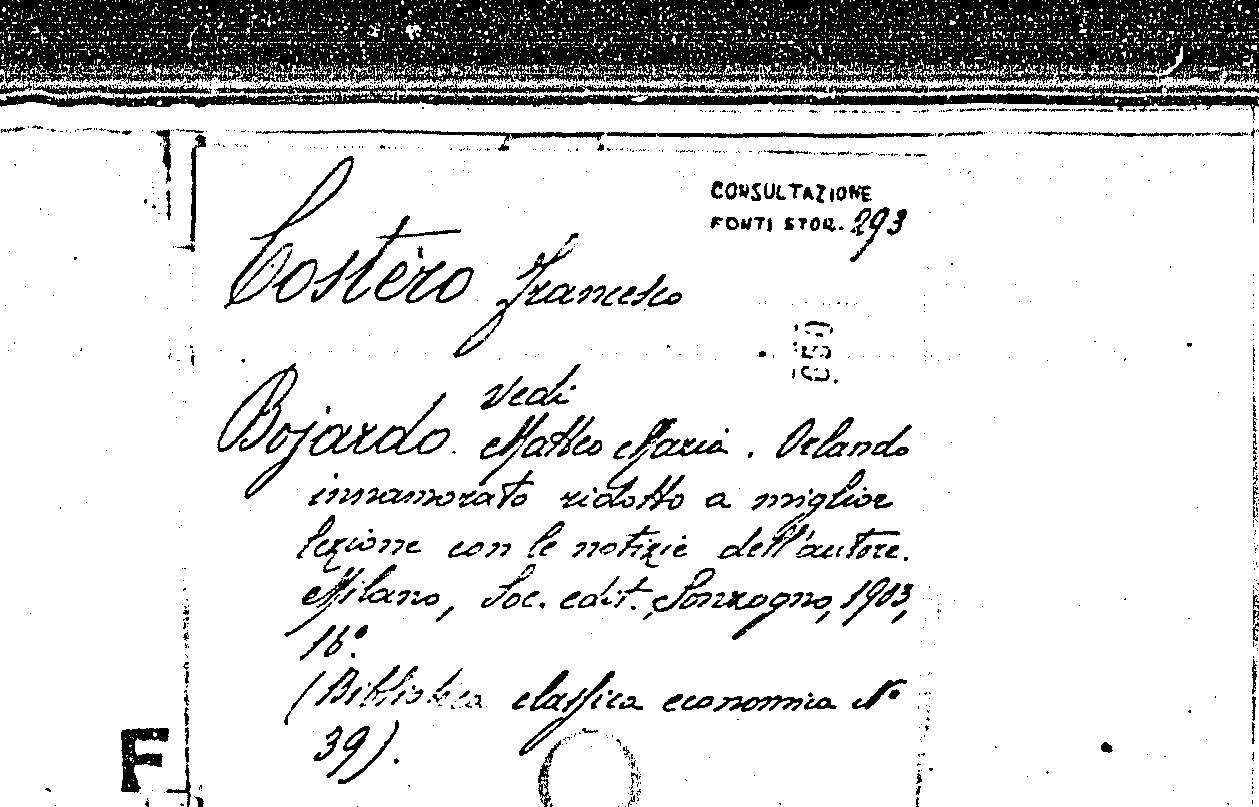 CONSULTAZIONE
FONTI STOR. 293
Costèro Francesco
Vedi
Bojardo. Matteo Maria. Orlando
innamorato ridotto a miglior
lezione con le notizie dell'autore.
Milano, Soc. edit. Sonzogno, 1903,
16°.
(Biblioteca classica economica N°
39).
F